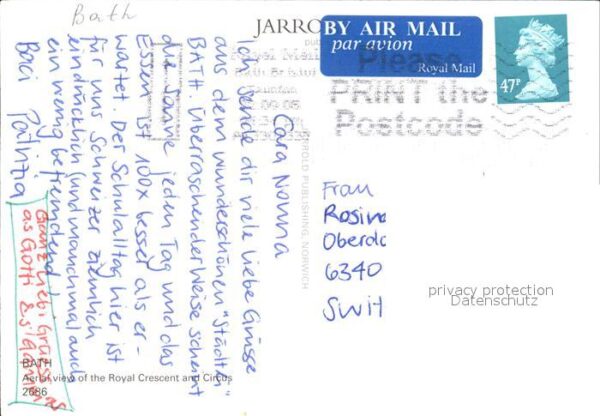 Bath
JARRO
BY AIR MAIL
par avion
Royal Mail
47P
Royal Mail
Please
PRINT the
Postcode
Cara Nonna
Ich sende dir viele liebe Grüsse
aus dem wunderschönen "Städtli"
BATH. Überraschender Weise scheint
die Sonne jeden Tag und das
Essen ist 100x besser als er-
wartet. Der Schulalltag hier ist
für uns Schweizer ziemlich
eindrücklich (und manchmal auch
ein wenig befremdend)
Baci
Ganz liebi Grüess
as Gotti &
Frau
Rosin
Oberd
6340
Swit
privacy protection
Datenschutz
BATH
Aerial view of the Royal Crescent and Circus
2686
JARROLD PUBLISHING, NORWICH